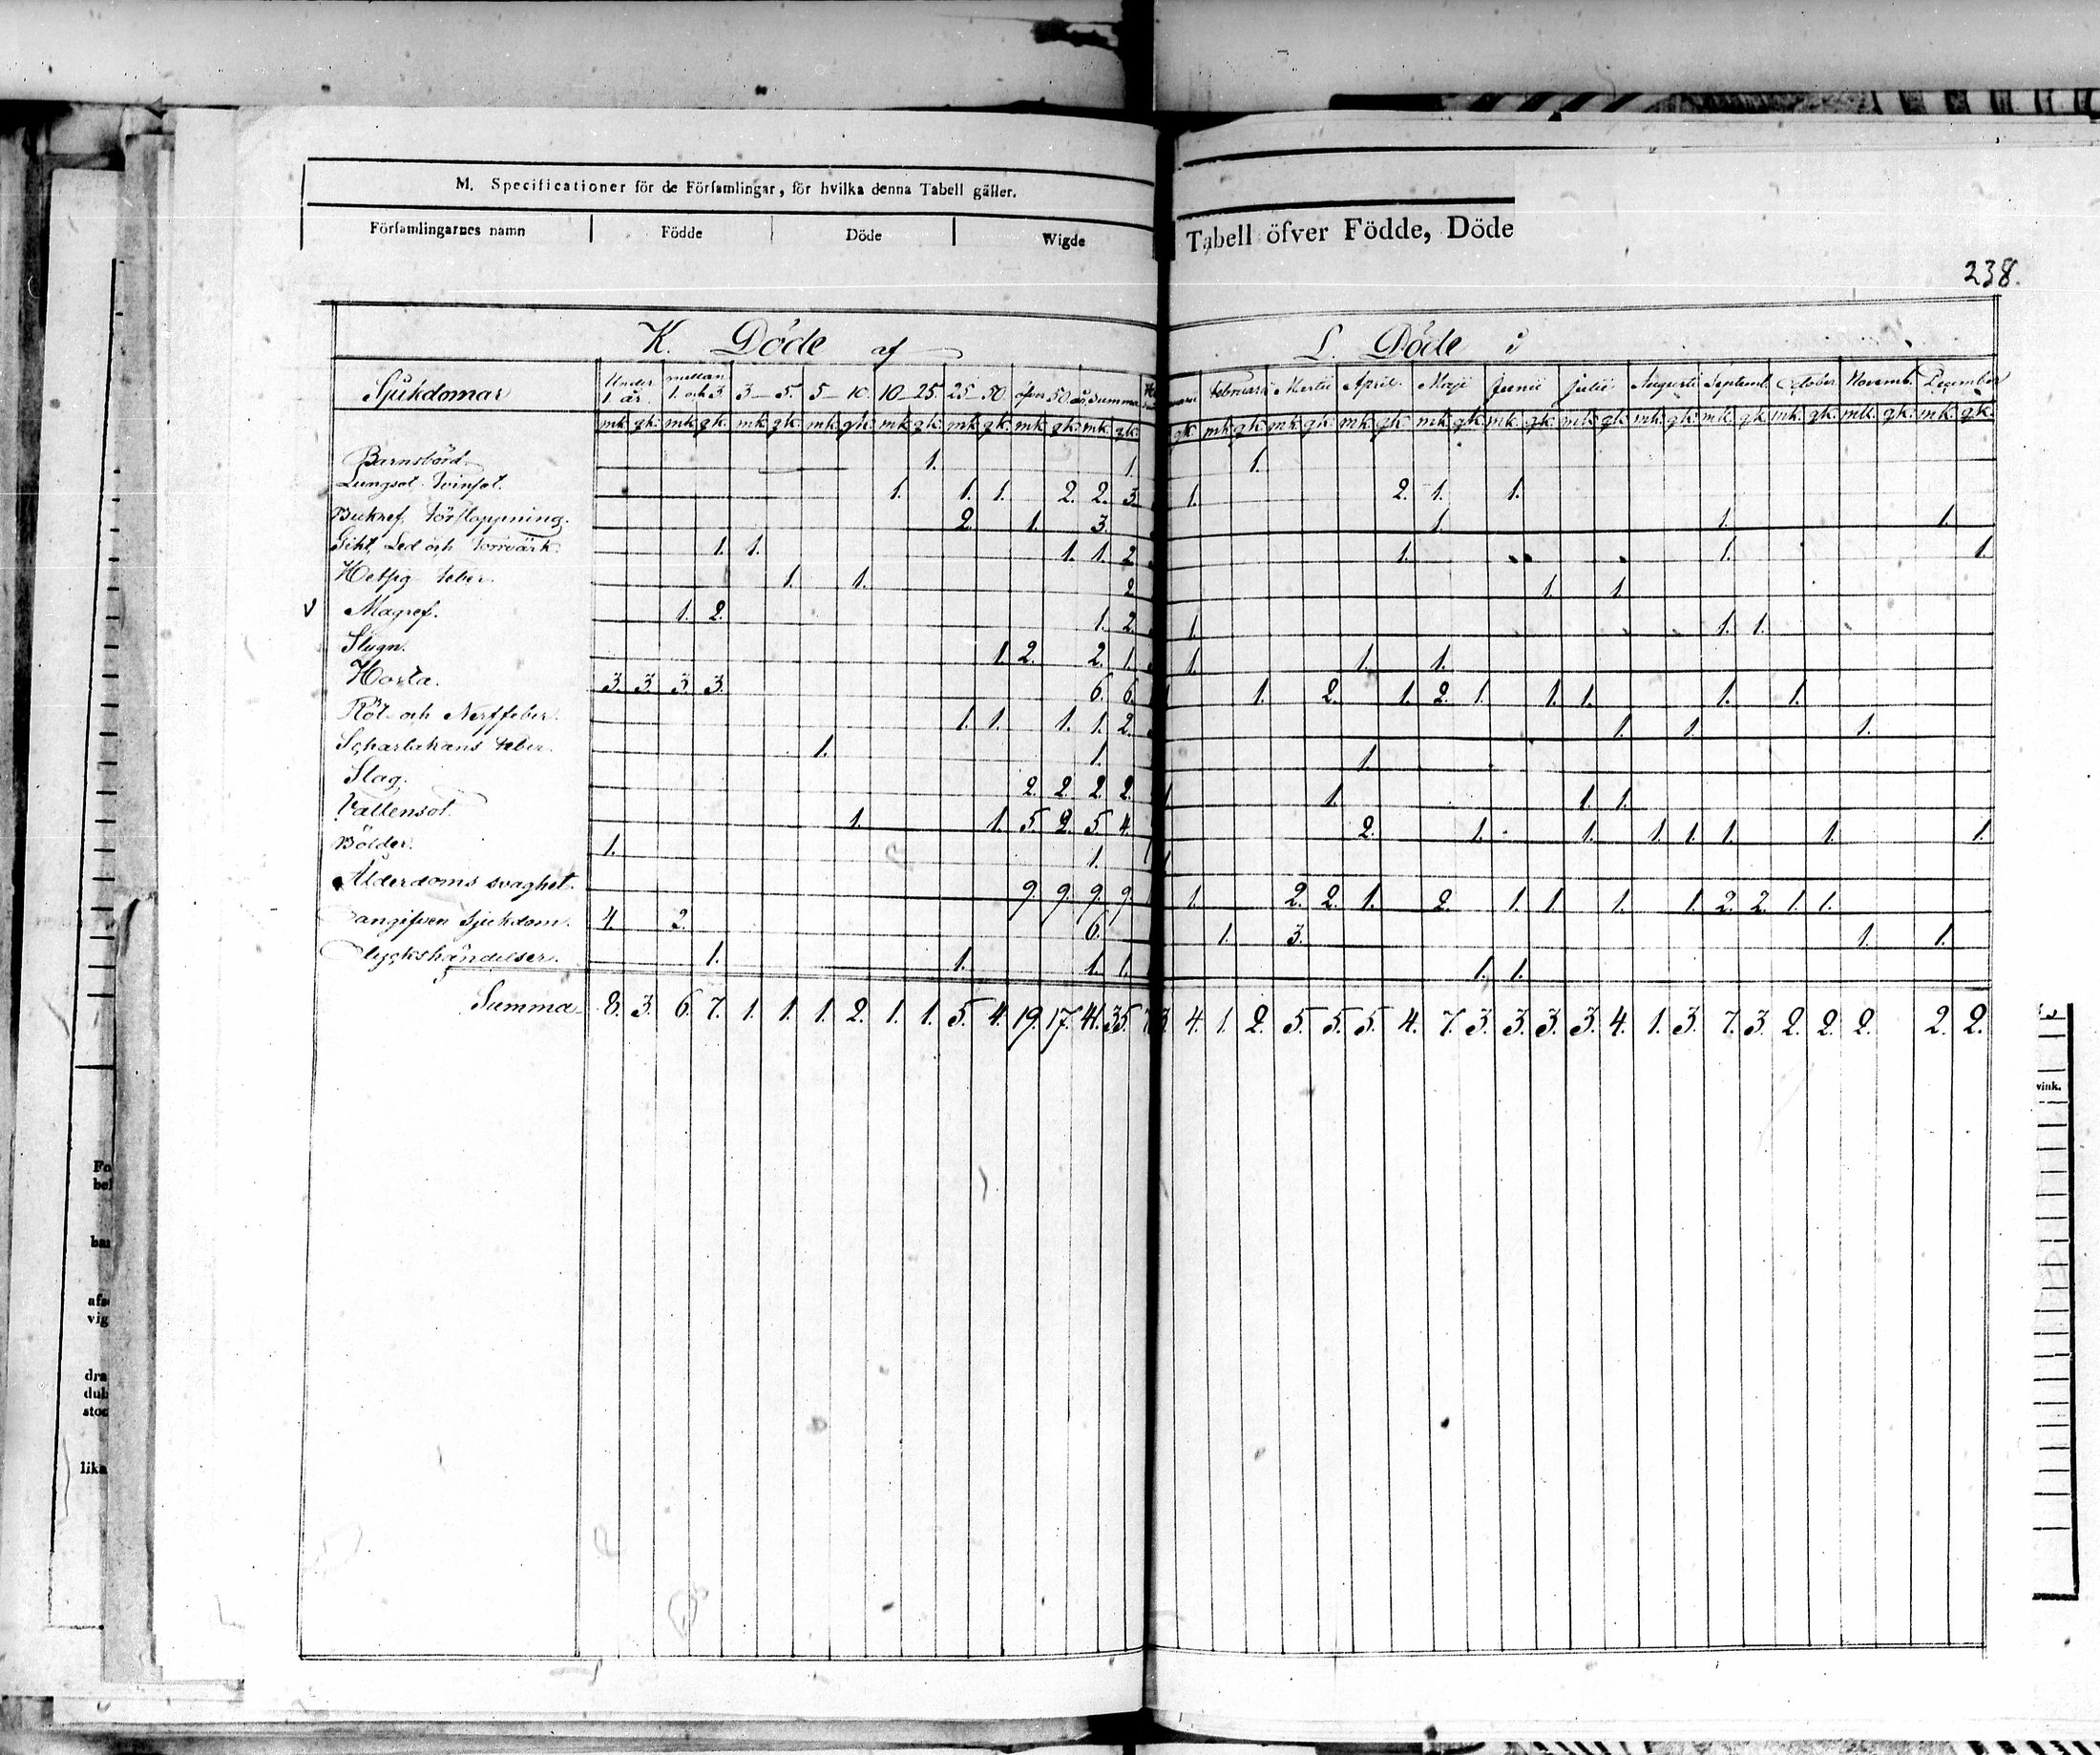 M. Specificationer för de Församlingar, för hvilka denna Tabell gäller.
Församlingarnes namn Födde Döde Wigde
Tabell öfver Födde, Döde
238.
K. Döde af
L. Döde i
Sjukdomar Under 1 år. mellan 1. och 3. 3 - 5. 5 - 10. 10 - 25. 25 - 50. öfver 50 år. Summa Februarii Martii April Maji Junii Julii Augustii Septemb. October Novemb. December
mk. qk. mk. qk. mk. qk. mk. qk. mk. qk. mk. qk. mk. qk. mk. qk. qk. mk. qk. mk. qk. mk. qk. mk. qk. mk. qk. mk. qk. mk. qk. mk. qk. mk. qk. mk. qk. mk. qk.
Barnsbörd. 1. 1. 1.
Lungsot Tvinsot. 1. 1. 1. 2. 2. 3. 1. 2. 1. 1.
Bukref, Förstoppning. 2. 1. 3. 1. 1. 1.
Gikt, Led och Torrvärk. 1. 1. 1. 1. 2. 1. 1. 1.
Hetsig feber. 1. 1. 2. 1. 1.
Magref. 1. 2. 1. 2. 1. 1. 1.
Slugn. 1. 2. 2. 1. 1. 1. 1.
Hosta. 3. 3. 3. 3. 6. 6. 1. 2. 1. 2. 1. 1. 1. 1. 1.
Röt- och Nerffeber. 1. 1. 1. 1. 2. 1. 1. 1.
Scharlakans feber. 1. 1. 1.
Slag. 2. 2. 2. 2. 1. 1. 1.
Vattensot. 1. 1. 5. 2. 5. 4. 2. 1. 1. 1. 1. 1. 1. 1.
Bölder. 1. 1.
Ålderdoms svaghet. 9. 9. 9. 9. 1. 2. 2. 1. 2. 1. 1. 1. 1. 2. 2. 1. 1.
angifven Sjukdom. 4. 2. 6. 1. 3. 1. 1.
lyckshändelser. 1. 1. 1. 1. 1. 1.
Summa 8. 3. 6. 7. 1. 1. 1. 2. 1. 1. 5. 4. 19. 17. 41. 35. 3. 4. 1. 2. 5. 5. 5. 4. 7. 3. 3. 3. 3. 4. 1. 3. 7. 3. 2. 2. 2. 2. 2.
vink.
lika